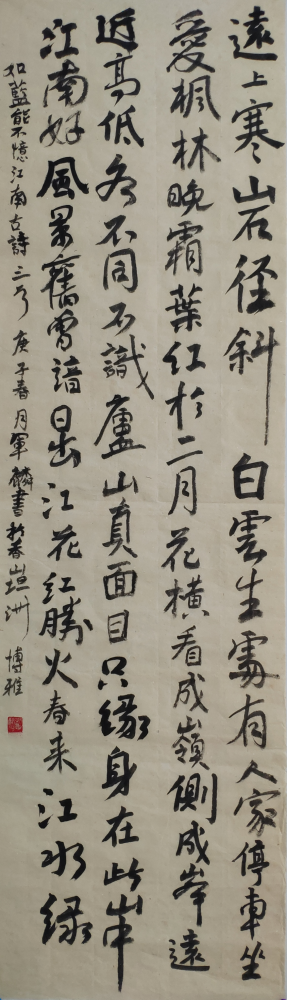 遠上寒山石径斜白雲生處有人家停車坐
愛楓林晚霜葉红於二月花橫看成嶺側成峯遠
近高低各不同不識廬山真面目只緣身在此峯中
江南好風景舊曾諳日出江花红勝火春来江水绿
如藍能不憶江南古詩三首庚子春月軍麟書於香洲博雅